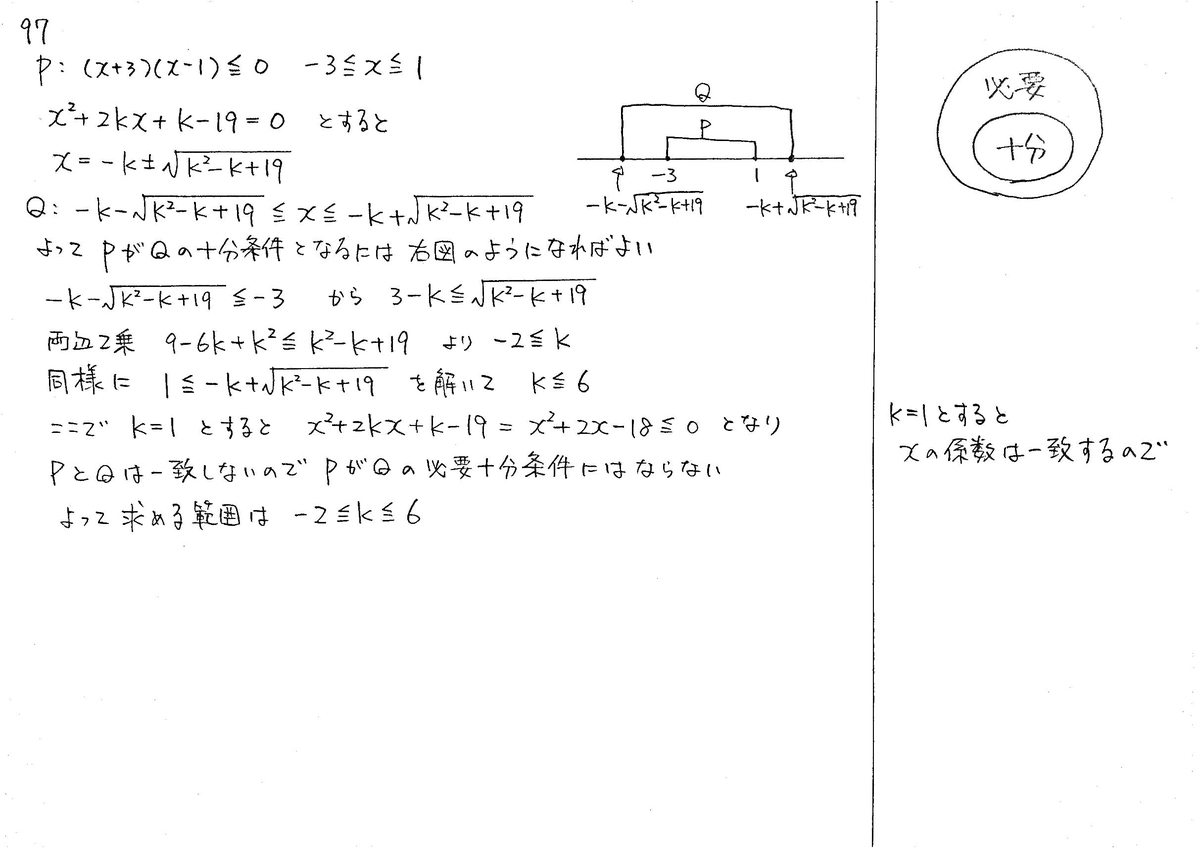 97
P: (x+3)(x-1)≦0  -3≦x≦1
x²+2kx+k-19=0 とすると
x=-k±√(k²-k+19)
Q: -k-√(k²-k+19)≦x≦-k+√(k²-k+19)
よって PがQの十分条件となるには 右図のようになればよい
-k-√(k²-k+19)≦-3 から 3-k≦√(k²-k+19)
両辺2乗 9-6k+k²≦k²-k+19 より -2≦k
同様に 1≦-k+√(k²-k+19) を解いて k≦6
ここで k=1 とすると x²+2kx+k-19=x²+2x-18≦0 となり
PとQは一致しないので PがQの必要十分条件にはならない
よって求める範囲は -2≦k≦6
Q
P
-3
1
-k-√(k²-k+19)
-k+√(k²-k+19)
必要
十分
k=1とすると
xの係数は一致するので